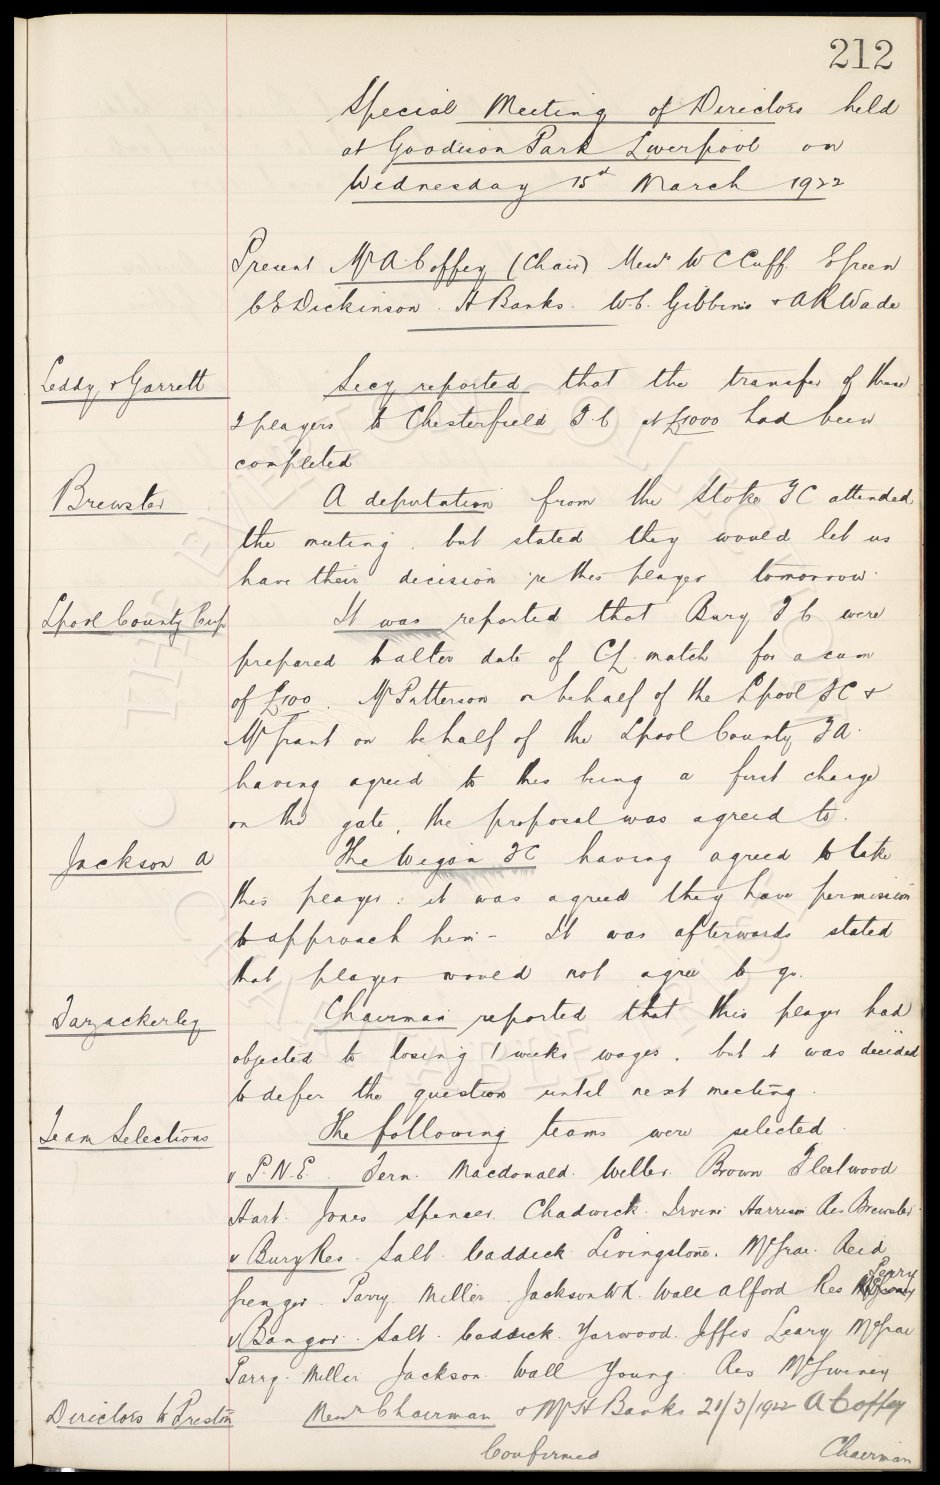 212
Special Meeting of Directors held
at Goodison Park Liverpool on
Wednesday 15th March 1922
Present Mr A Coffey (Chair) Messrs W C Cuff. E Green
C E Dickinson. H Banks. W.C. Gibbins + A R Wade
Leddy + Garrett
Secy reported that the transfer of these
2 players to Chesterfield F.C at £1000 had been
completed
Brewster
A deputation from the Stoke FC attended
the meeting. but stated they would let us
have their decision re this player tomorrow.
Lpool County Cup
It was reported that Bury F C were
prepared to alter date of CL. match for a sum
of £100. Mr Patterson on behalf of the Lpool FC +
Mr Grant on behalf of the Lpool County FA.
having agreed to this being a first charge
on the gate, the proposal was agreed to.
Jackson A
The Wigan FC having agreed to take
this player: it was agreed they have permission
to approach him - It was afterwards stated
that player would not agree to go.
Tarzackerley
Chairman reported that this player had
objected to losing 1 weeks wages. but it was decided
to defer the question until next meeting.
Team Selections
The following teams were selected.
v P.N.E. Fern. Macdonald. Weller. Brown Fleetwood
Hart. Jones Spencer. Chadwick. Irvine Harrison Res Brewster.
v Bury Res. Salt. Caddick. Livingstone. McGrae. Reid
Grenyer. Parry. Miller. Jackson WR. Wall Alford Res Perry
v Bangor. Salt. Caddick. Yarwood. Jeffes Leary McGrae
Parry. Miller Jackson. Wall Young. Res McSweeney
Directors to Preston
Messrs Chairman + Mr H Banks 21/3/1922 A Coffey
Confirmed Chairman
THE EVERTON